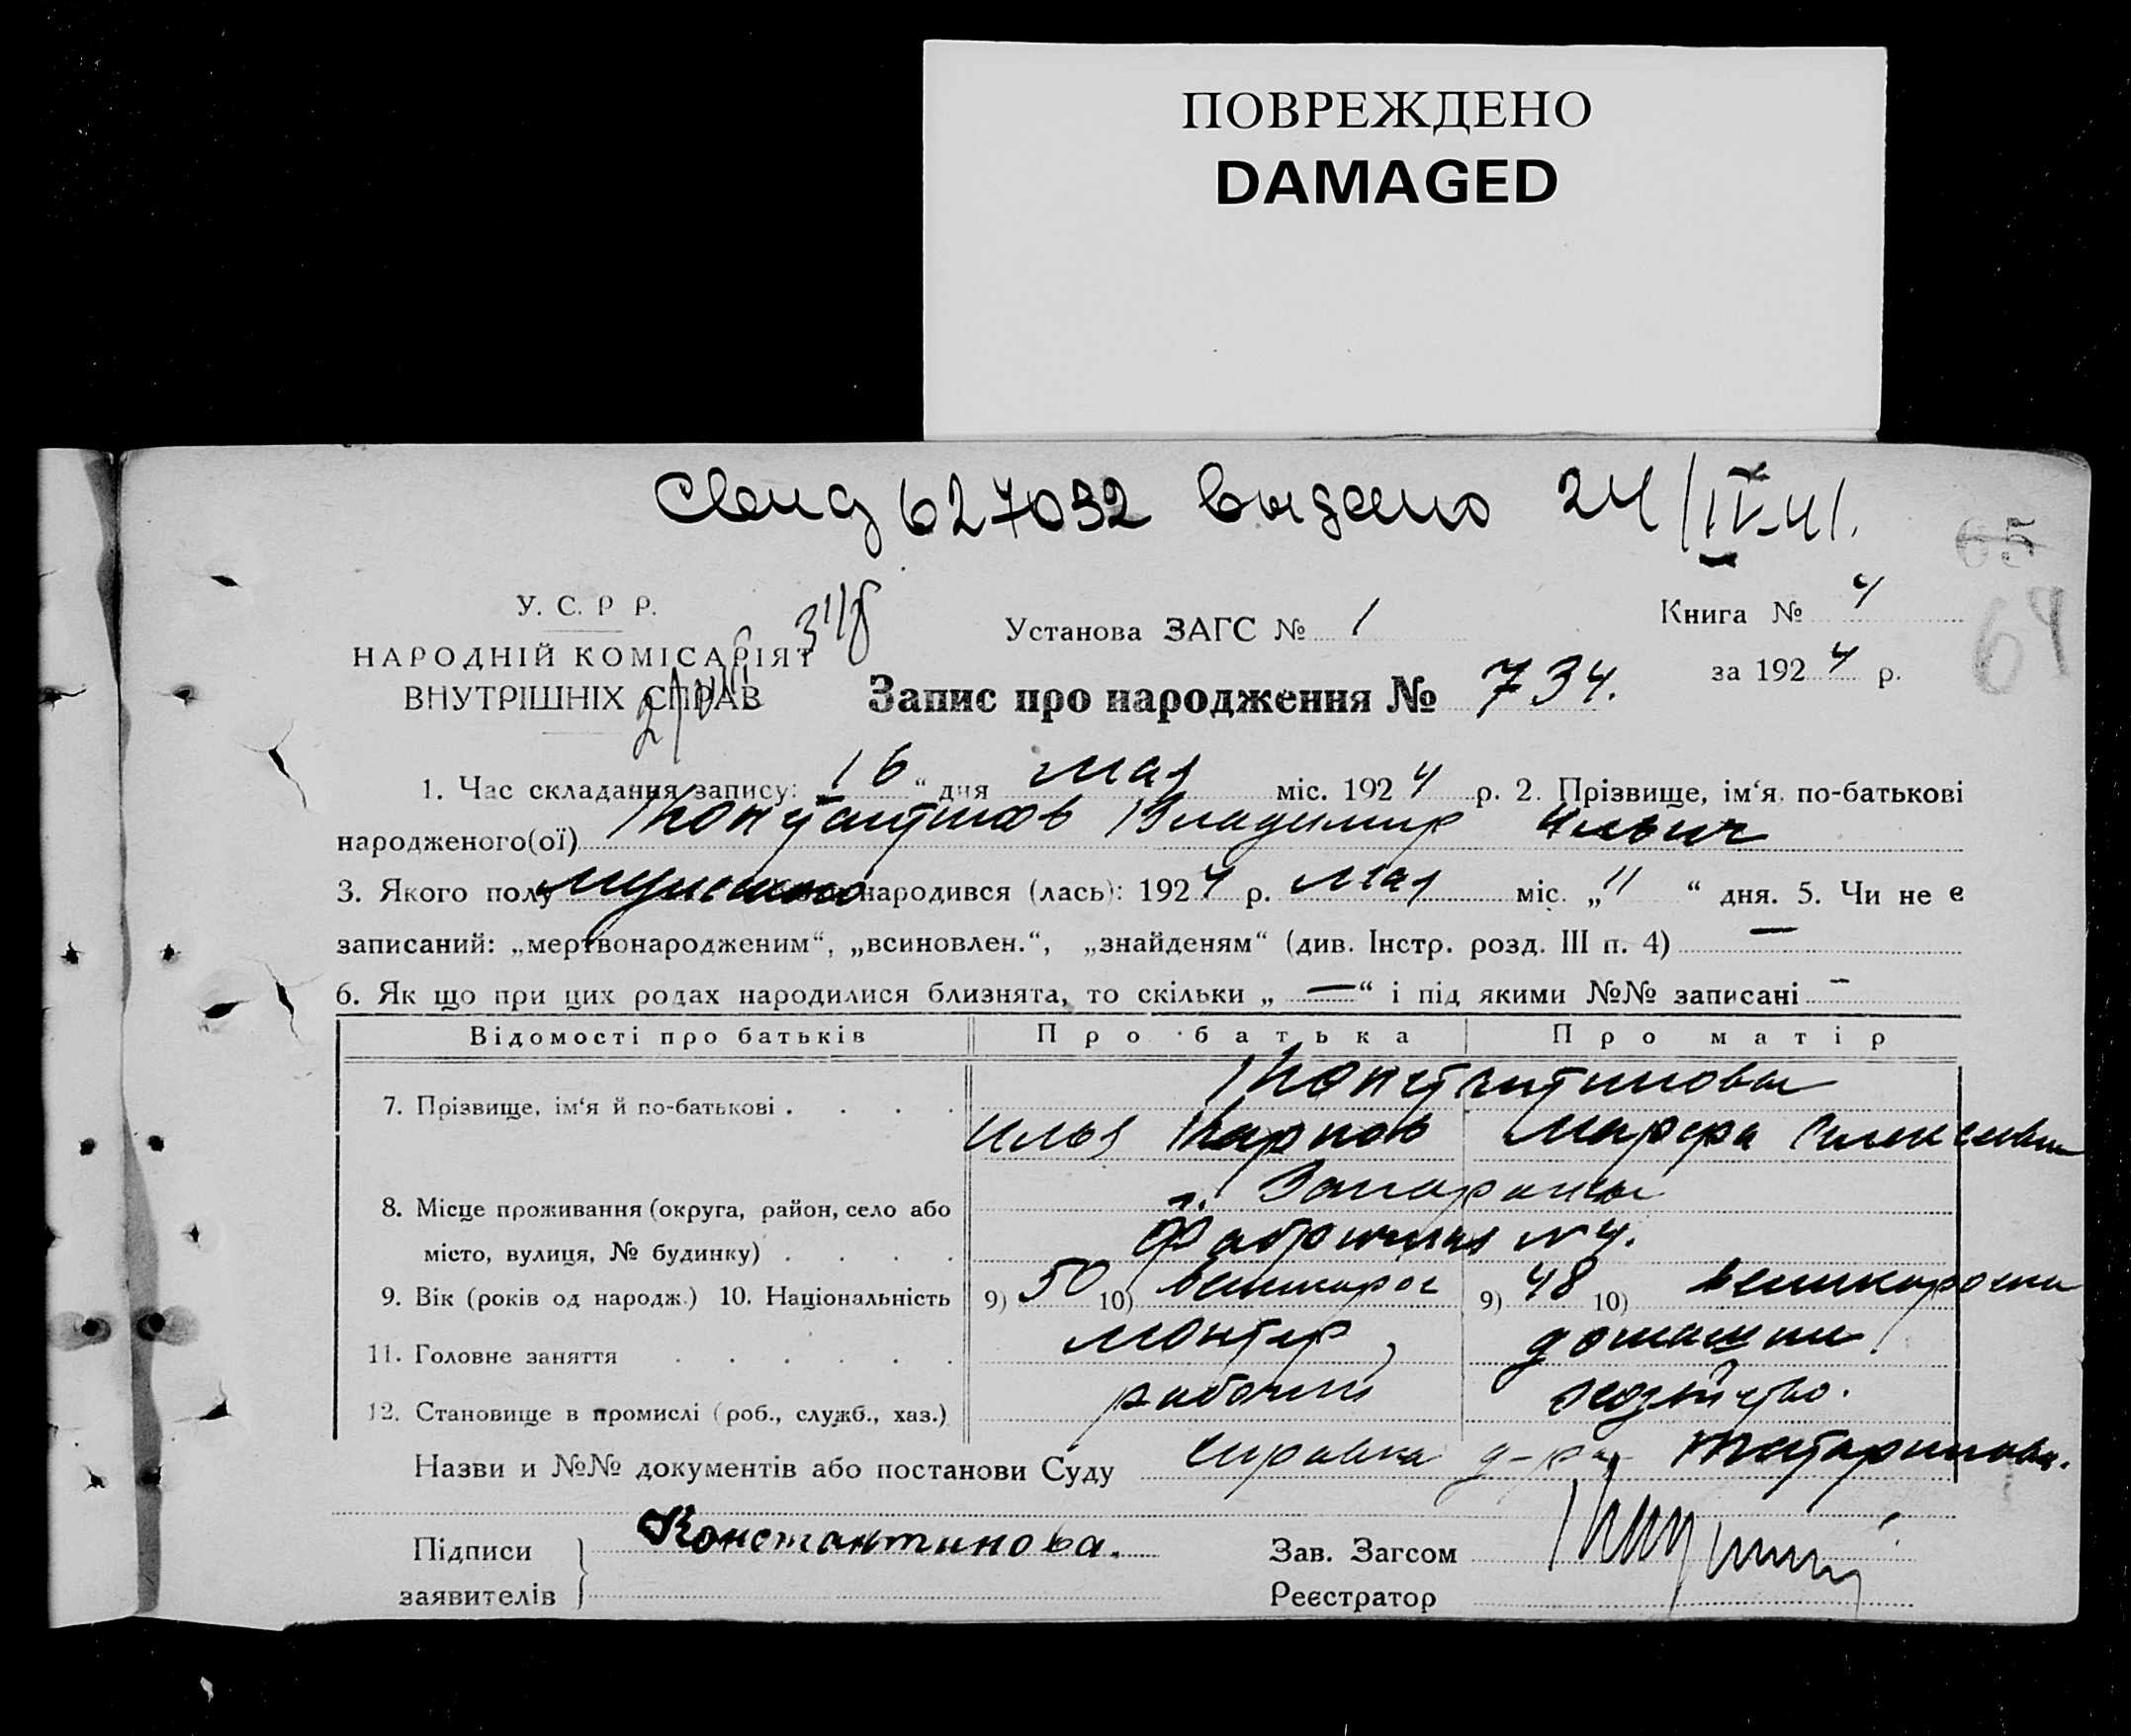 ПОВРЕЖДЕНО
DAMAGED
627032 выдано 24/IV-41.
65
64
У. С. Р Р.
НАРОДНІЙ КОМІСАРІЯТ
ВНУТРІШНІХ СПРАВ
Установа ЗАГС № 1
Книга № 4
за 1924 р.
Запис про народження № 734.
1. Час складання запису: 16 “ дня мая міс. 1924 р. 2. Прізвище, ім‘я, по-батькові
народженого(ої) Константинов Владимир Ильич
3. Якого полу народився (лась): 1924 р. мая міс. „11 “ дня. 5. Чи не є
записаний: „мертвонародженим“, „всиновлен.“, „знайденям“ (див. Інстр. розд. III п. 4) —
6. Як що при цих родах народилися близнята, то скільки „ — “ і під якими №№ записані -
Відомості про батьків Про батька Про матір
7. Прізвище, ім‘я й по-батькові . . . . Константиновы
Илья Карпов Марфа Алексеевна
8. Місце проживання (округа, район, село або г. Запорожье
місто, вулиця, № будинку) . . . . Фабричная № 4.
9. Вік (років од народж.) 10. Національність 9) 50 10) великорос 9) 48 10) великоросска
11. Головне заняття . . . . . . монтер, домашн.
12. Становище в промислі (роб., служб., хаз.) рабочий хозяйство.
Назви и №№ документів або постанови Суду справка д-ра Татаринова.
Підписи Константинова. Зав. Загсом
заявителів Реєстратор